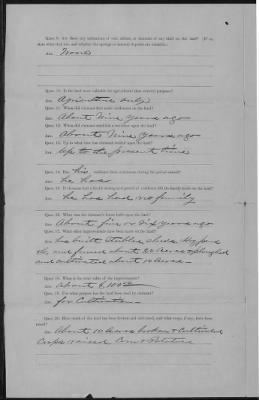 Ques. 9. Are there any indications of coal, salines, or minerals of any kind on this land? (If so,
state what they are, and whether the springs or mineral deposits are valuable.)
Ans. None
Ques. 10. Is the land more valuable for agricultural than mineral purposes?
Ans. Agriculture only
Ques. 11. When did claimant make settlement on the land?
Ans. About Nine years ago
Ques. 12. When did claimant establish a residence upon the land?
Ans. About Nine years ago
Ques. 13. Up to what time has claimant resided upon the land?
Ans. Up to the present time
Ques. 14. Has his residence been continuous during the period named?
Ans. he has
Ans. he has had no family
Ques. 16. What was the claimant's house built upon the land?
Ans. About five or six years ago
Ques. 17. What other improvements have been made on the land?
Ans. has built stables
and fenced about 80 acres & ploughed
and cultivated about 10 acres
Ques. 18. What is the total value of the improvements?
Ans. About $
Ques. 19. For what purpose has the land been used by claimant?
Ans. for Cultivation
Ques. 20. How much of the land has been broken and cultivated, and what crops, if any, have been
raised?
Ans. About 10 acres broken & Cultivated
Crops raised Corn & Potatoes